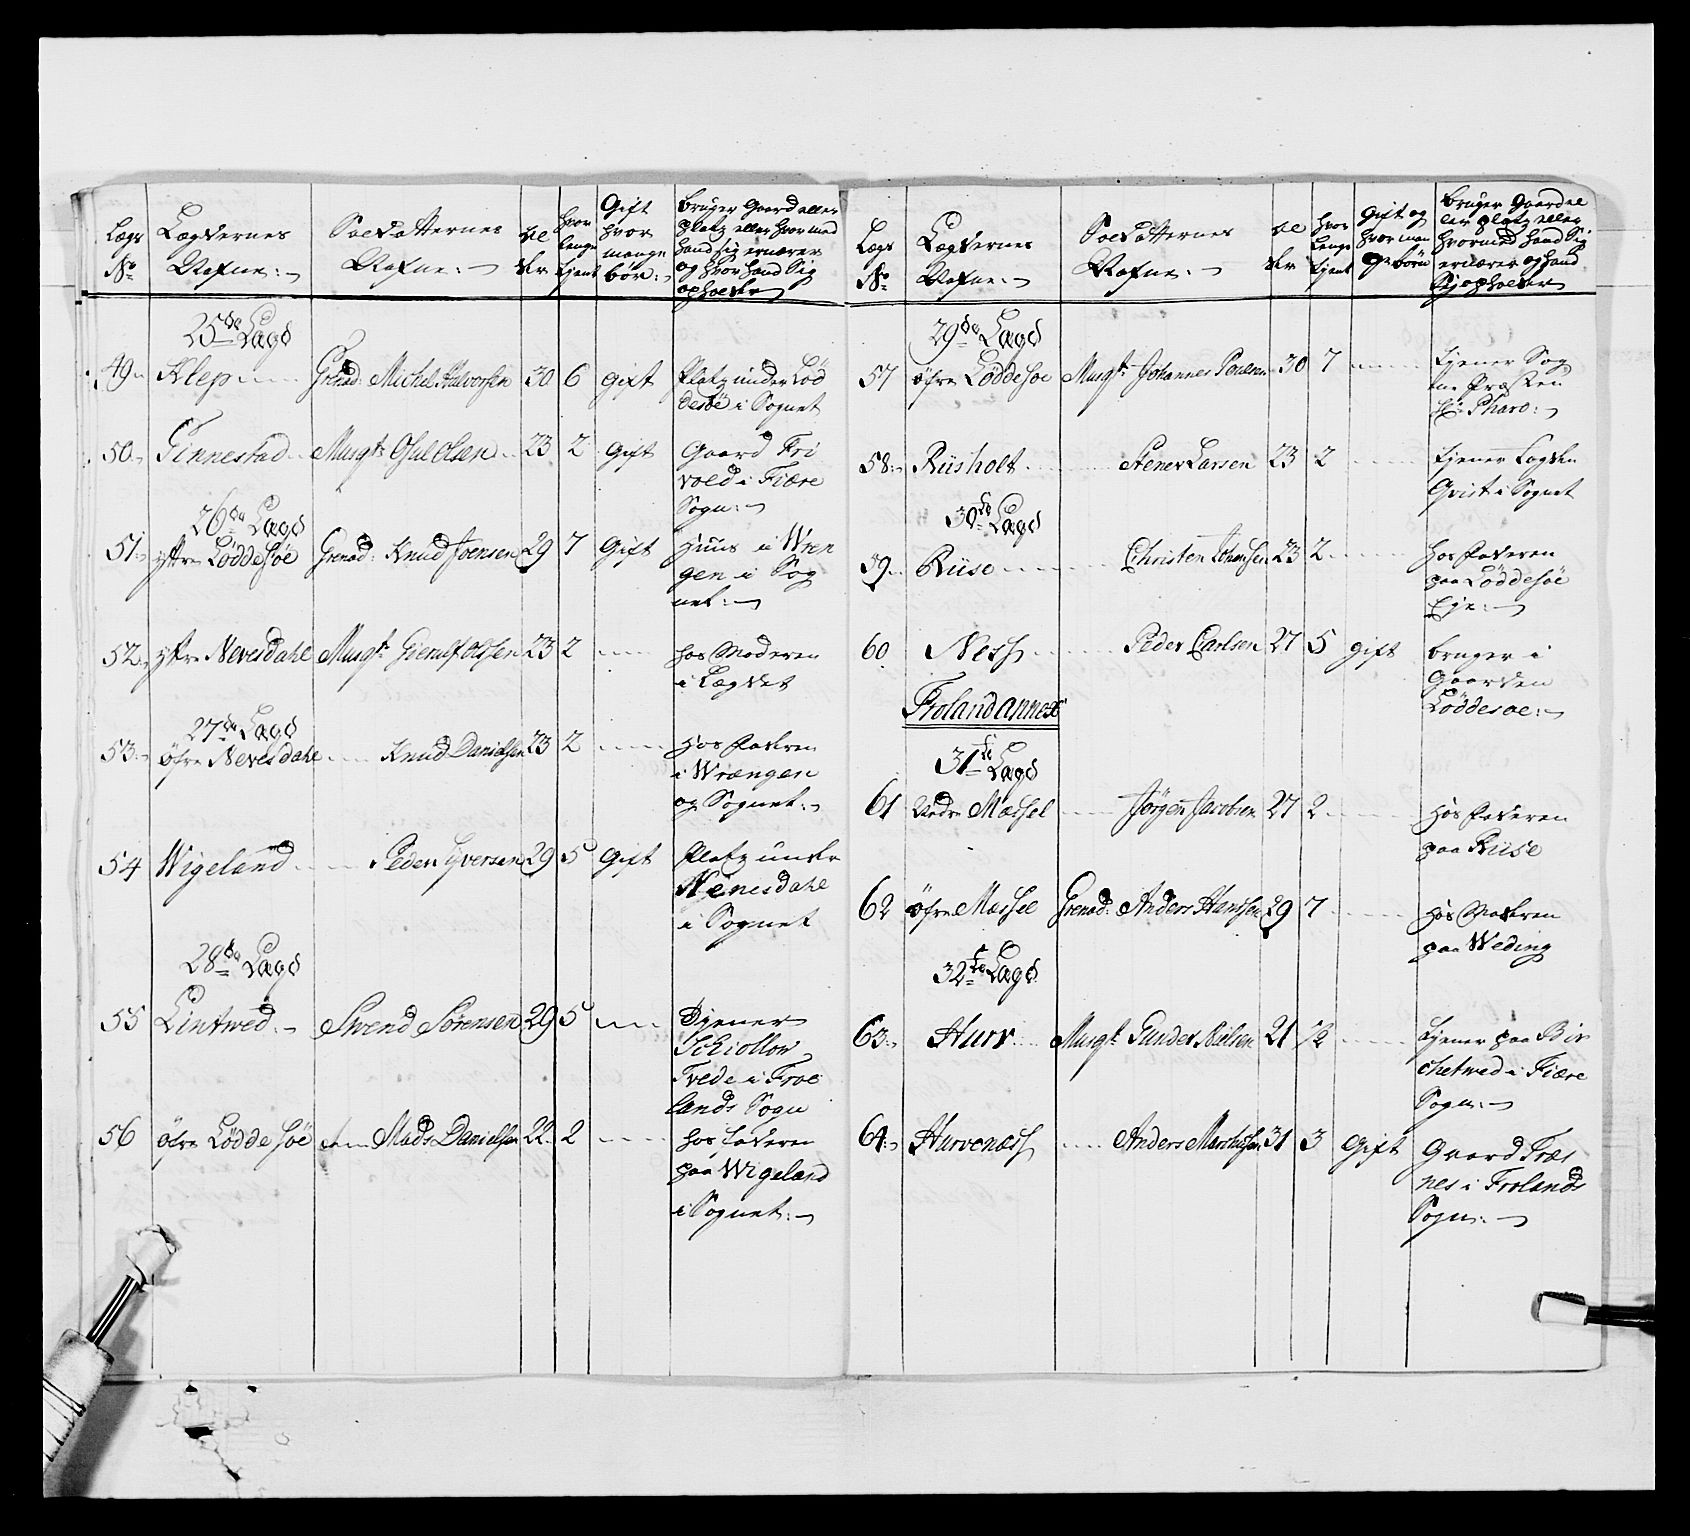 Lægs No
Lægdernes Nafne:
Soldatternes Nafne:
Al der
hvor lenge tient
Gift hvor mange børn:
bruger Gaard eller platz eller hvormed hand sig ernærer og hvor hand sig opholder
25de Lagd
49 Klep Grenad: Michel Halvorsen 30 6 gift Platz under Lød
desøe i Sognet
50 Finnestad Musqt: Osul Olsen 23 2 Gift Gaard Fri
vold i Fiære
Sogn:
26de Lagd
51 yttre Løddesøe Grenad: Knud Joensen 29 7 Gift Huus i Wren
gen i Sog
net:
52 yttre Nevesdahl Musqt: Gierulf Olssen 23 2 hos Moderen
i Lægdet
27de Lagd
53 öfre Nevesdahl Knud Danielsen 23 2 hos Faderen
i Wrængen
og Sognet:
54 Wigeland Peder Iversen 29 5 Gift Platz under
Nevesdahl
i Sognet
28de Lagd
55 Lintved Svend Sørensen 29 5 Tjener
Tvede i Froe
lands Sogn
56 öfre Løddesöe Mads Danielsen 22 2 hos Faderen
paa Wigeland
i Sognet:
Lægs No
Lægdernes Nafne:
Soldatternes Nafne:
al der
hvor lenge tient
Gift og hvor man ge børn
bruger Gaard el ler platz eller hvormed hand sig ernærer og hand sig opholder
29de Lagd
57 öfre Løddesoe Musqt: Johannes Poulsen 30 7 tjener Sog
ne Præsten
Hr: Pharo:
58 Riisholt Stener Larsen 23 2 tjener Lagden
Qvist i Sognet
30te Lagd
59 Riise Christen Johansen 23 2 hos Faderen
paa Løddesøe
Eje:
60 Ness Peder Carlsen 27 5 gift bruger i
Gaarden
Løddesoe:
Froland annex
31te Lagd
61 Nedre Mæssel Jørgen Jacobsen 27 2 hos Faderen
paa Riise
62 öfre Messel Grenad: Anders Hanssen 29 7 hos Moderen
paa Weding
32te Lagd
63 Hurv Musqt: Gunder Nielsen 21 1/2 tjener paa Bir
chetved i Fiære
Sogn:
64 Hurvenæss Anders 31 3 Gift Gaard Træs
nes i Frolands
Sogn: